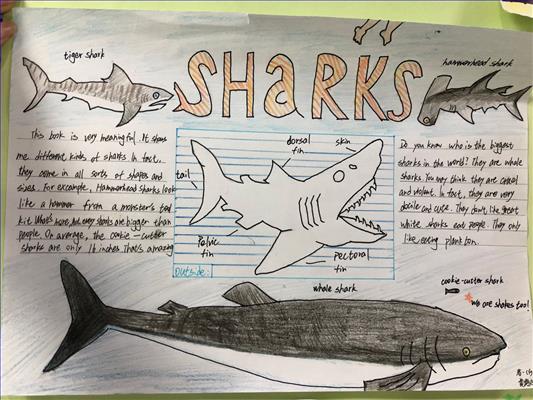 SHARKS
tiger shark
hammerhead shark
This book is very meaningful. It shows
me different kinds of sharks. In fact,
they come in all sorts of shapes and
sizes. For example, Hammerhead sharks look
like a hammer from a monster's tool
kit. What's more, not every sharks are bigger than
people. On average, the cookie-cutter
sharks are only 16 inches. That's amazing
dorsal
fin
skin
tail
Pelvic
fin
Pectoral
fin
Outside:
Do you know who is the biggest
sharks in the world? They are whale
sharks. You may think they are
and violent. In fact, they are very
docile and cute. They don't like great
white sharks eat people. They only
like eating plankton.
whale shark
cookie-cutter shark
We are sharks too!